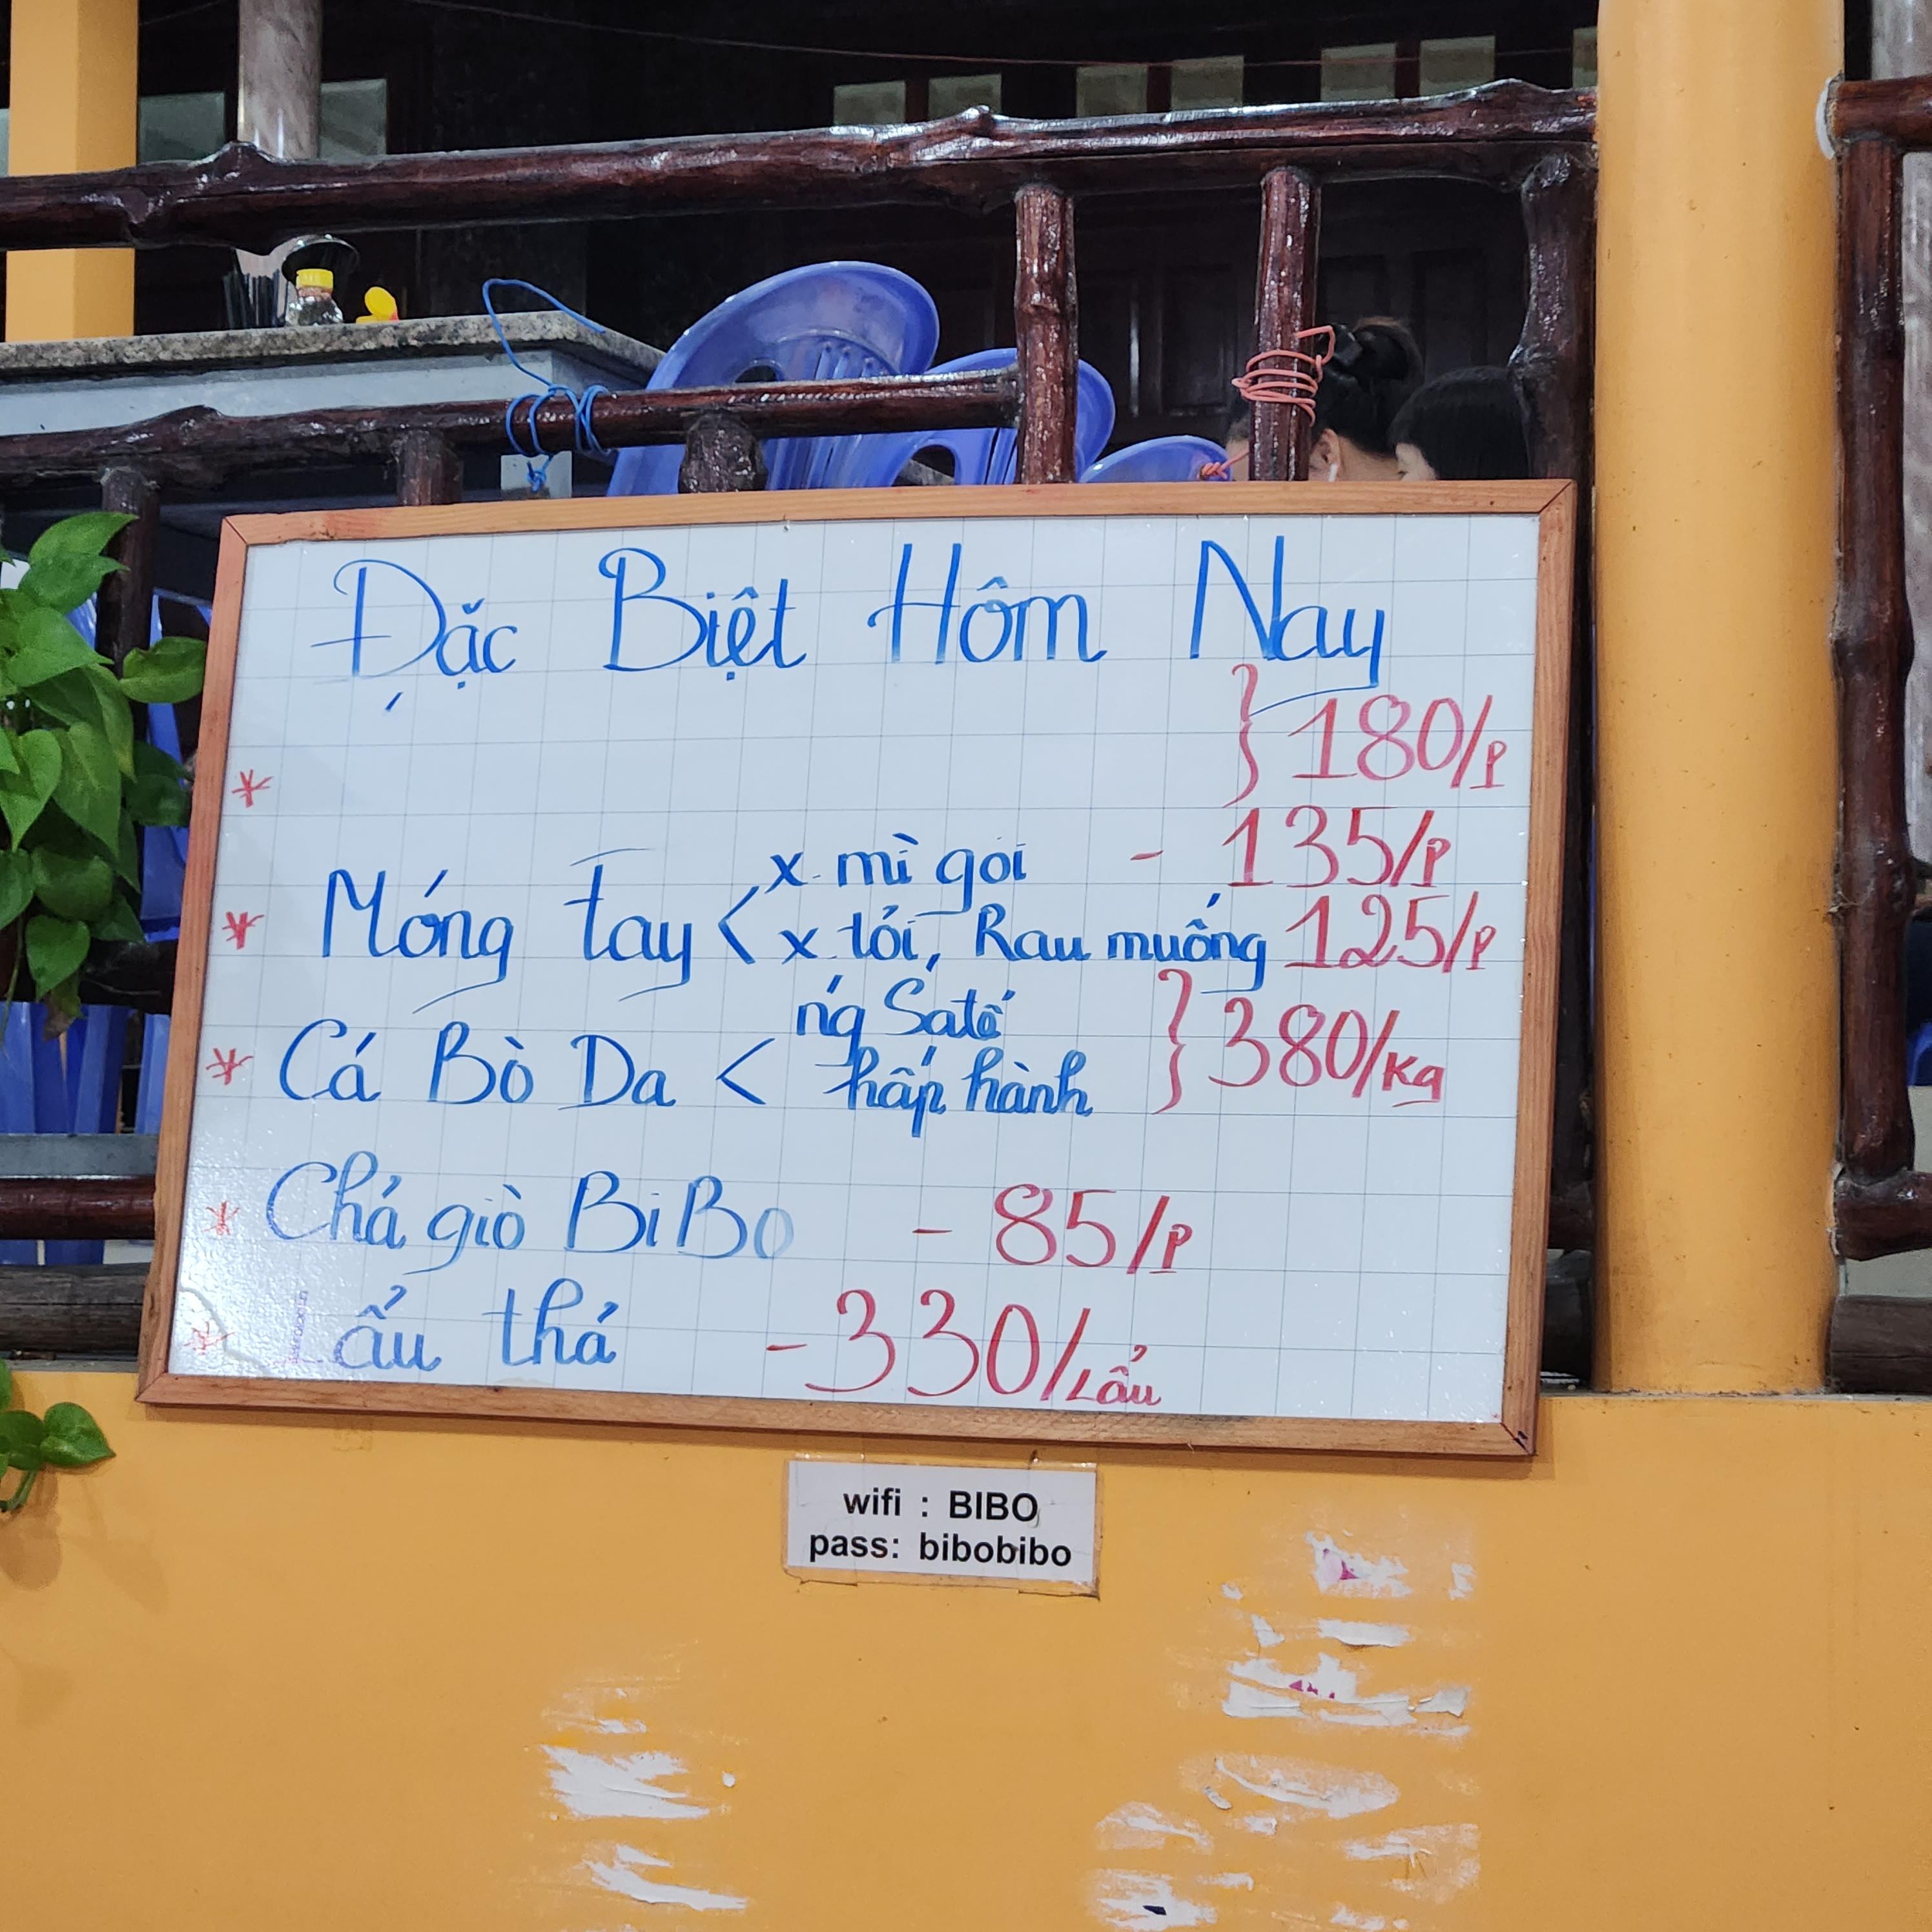 Đặc Biệt Hôm Nay
* } 180/P
* Móng tay < x mì gói - 135/P
x tỏi, Rau muống 125/P
* Cá Bò Da < ng Satế
hấp hành } 380/Kg
* Chả giò BiBo - 85/P
* Lẩu thả - 330/Lẩu
wifi : BIBO
pass: bibobibo